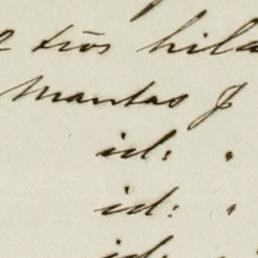 2 tros hila
Mantas J
id: "
id: "
id: